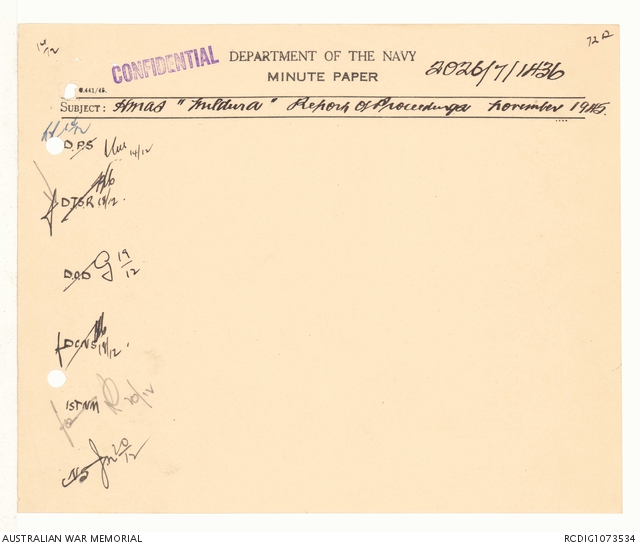 14/12
72A
CONFIDENTIAL
DEPARTMENT OF THE NAVY
MINUTE PAPER
2026/7/1436
C.441/45.
SUBJECT: HMAS "Mildura" Report of Proceedings November 1945.
D.P.S 14/12
DTSR 18/12.
D.O.D 19/12
DCNS 19/12.
1STNM 20/12
NS 20/12
AUSTRALIAN WAR MEMORIAL
RCDIG1073534